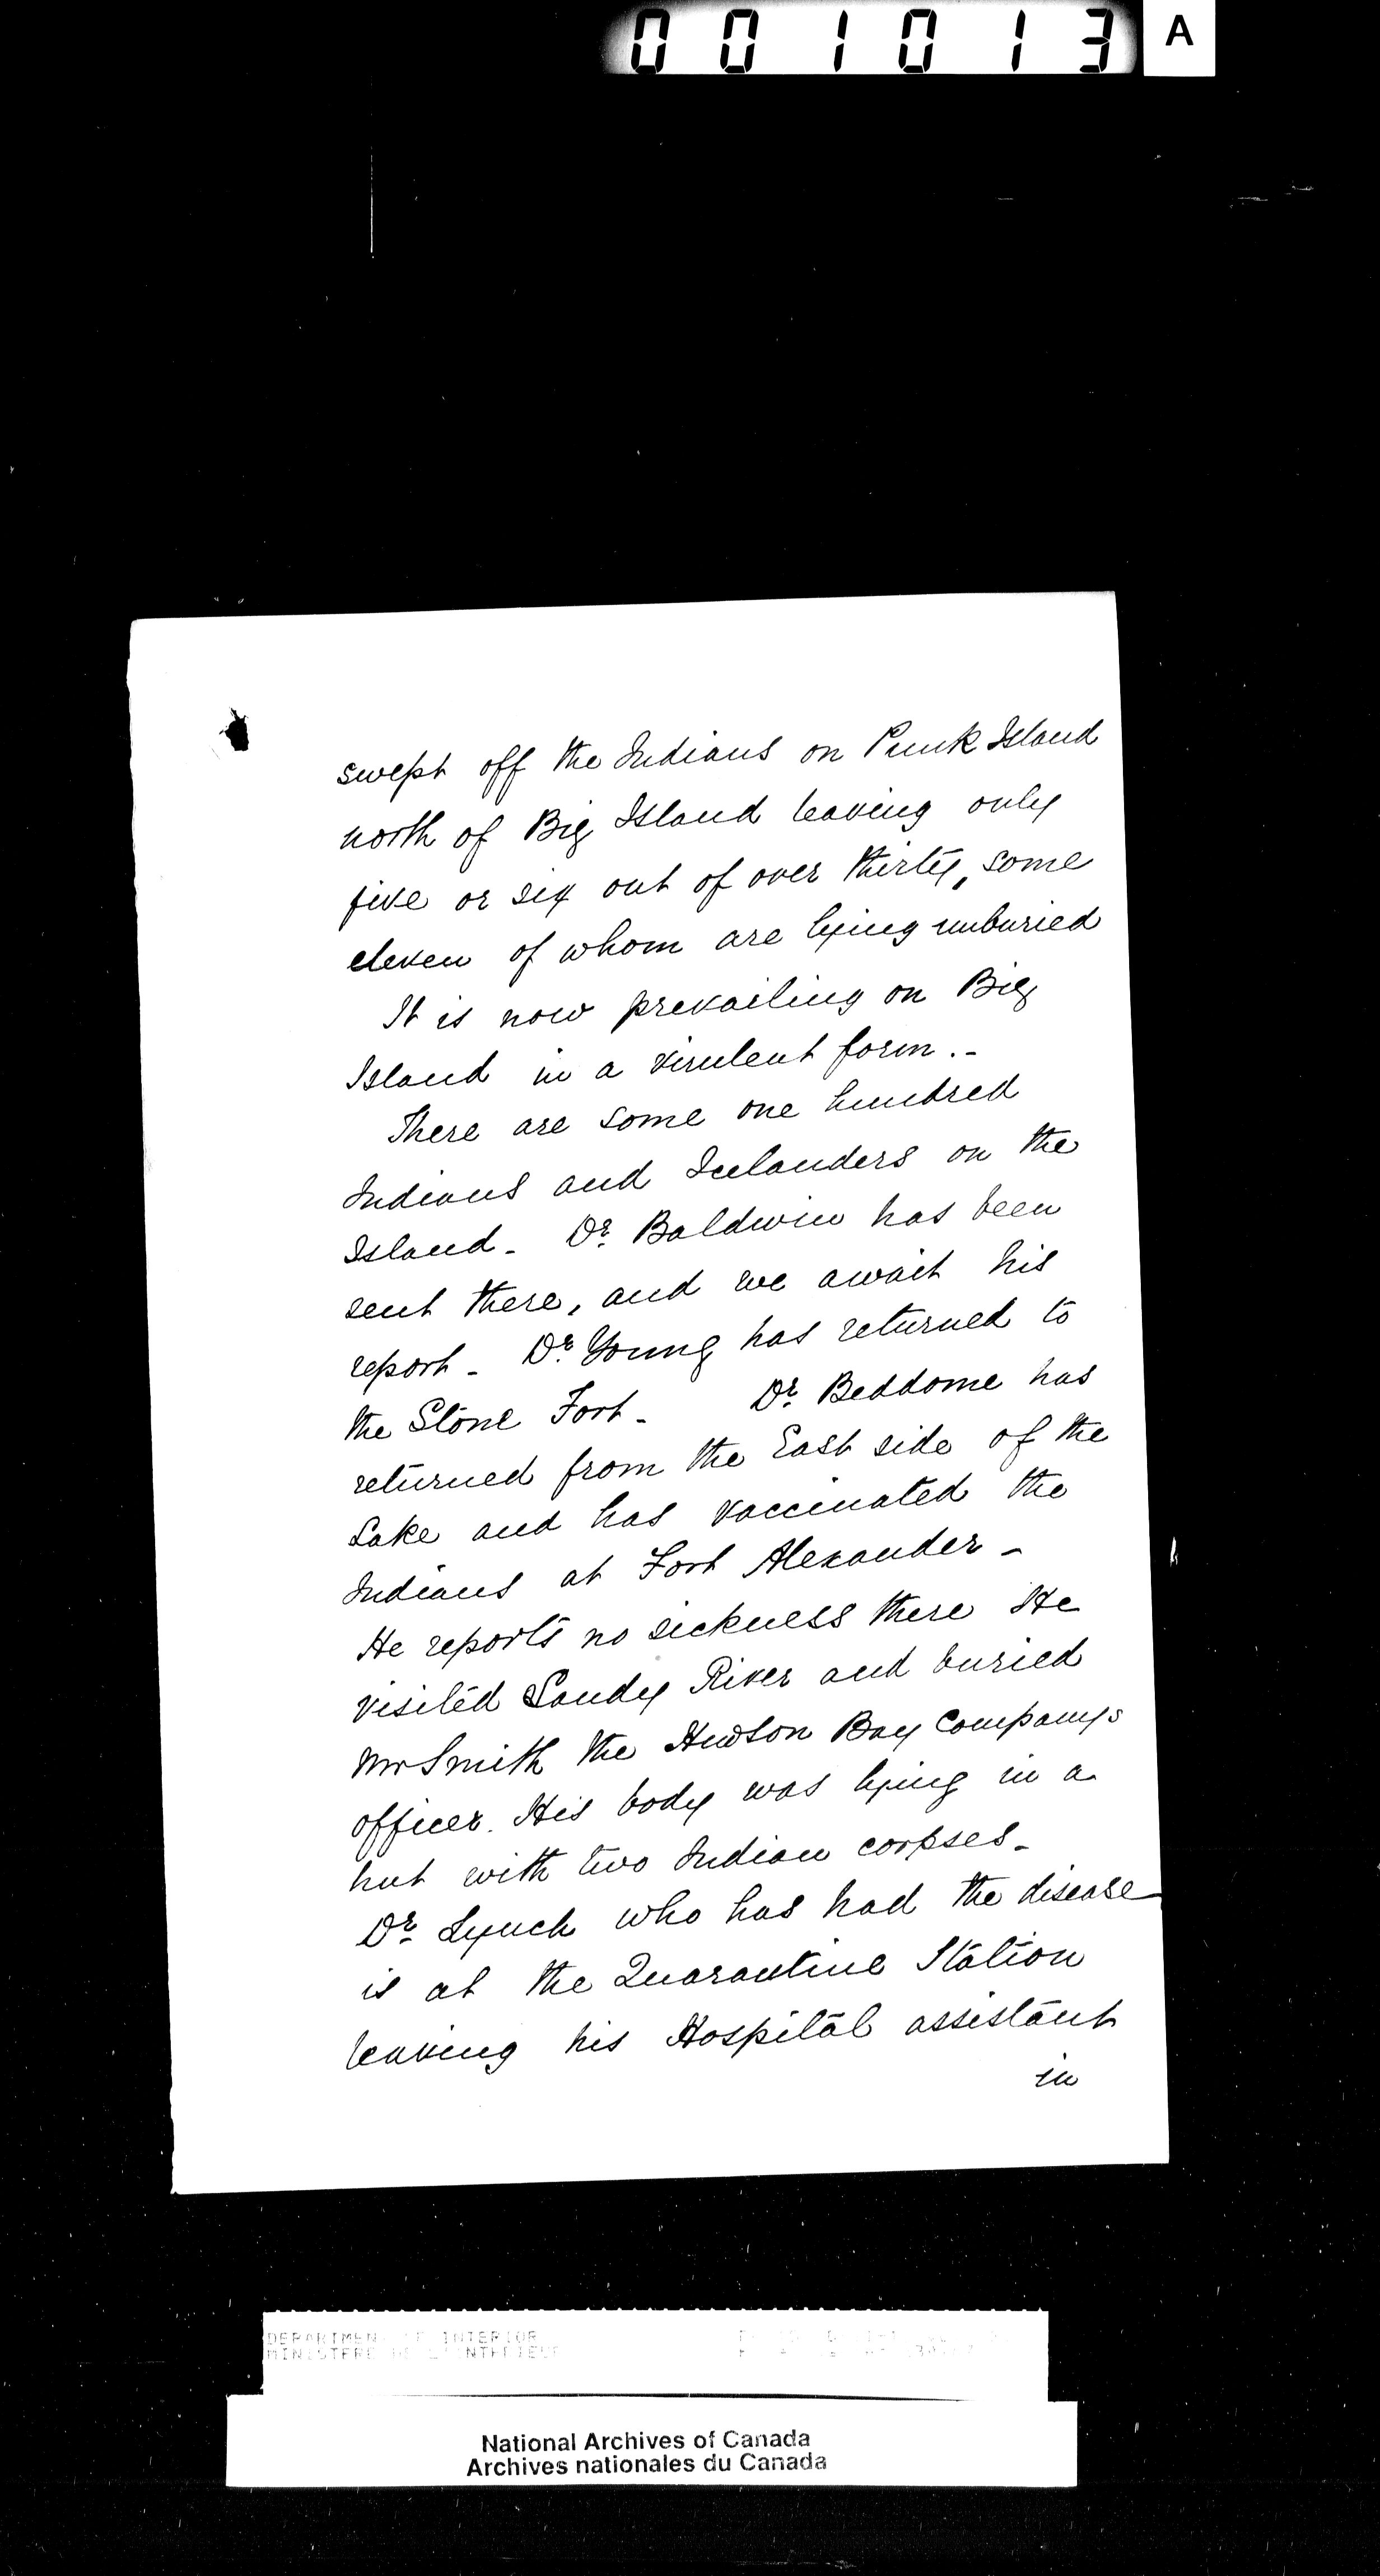 001013 A
swept off the Indians on Punk Island
north of Big Island leaving only
five or six out of over thirty, some
eleven of whom are lying unburied
It is now prevailing on Big
Island in a virulent form.-
There are some one hundred
Indians and Icelanders on the
Island - Dr. Baldwin has been
sent there, and we await his
report - Dr. Young has returned to
the Stone Fort - Dr. Beddome has
returned from the East side of the
Lake and has vaccinated the
Indians at Fort Alexander -
He reports no sickness there He
visited Sandy River and buried
Mr Smith the Hudson Bay Company's
officer. His body was lying in a
hut with two Indian corpses -
Dr. Lynch who has had the disease
is at the Quarantine Station
leaving his Hospital assistant
in
DEPARTMENT INTERIOR
MINISTERE DE L'INTERIEUR
National Archives of Canada
Archives nationales du Canada